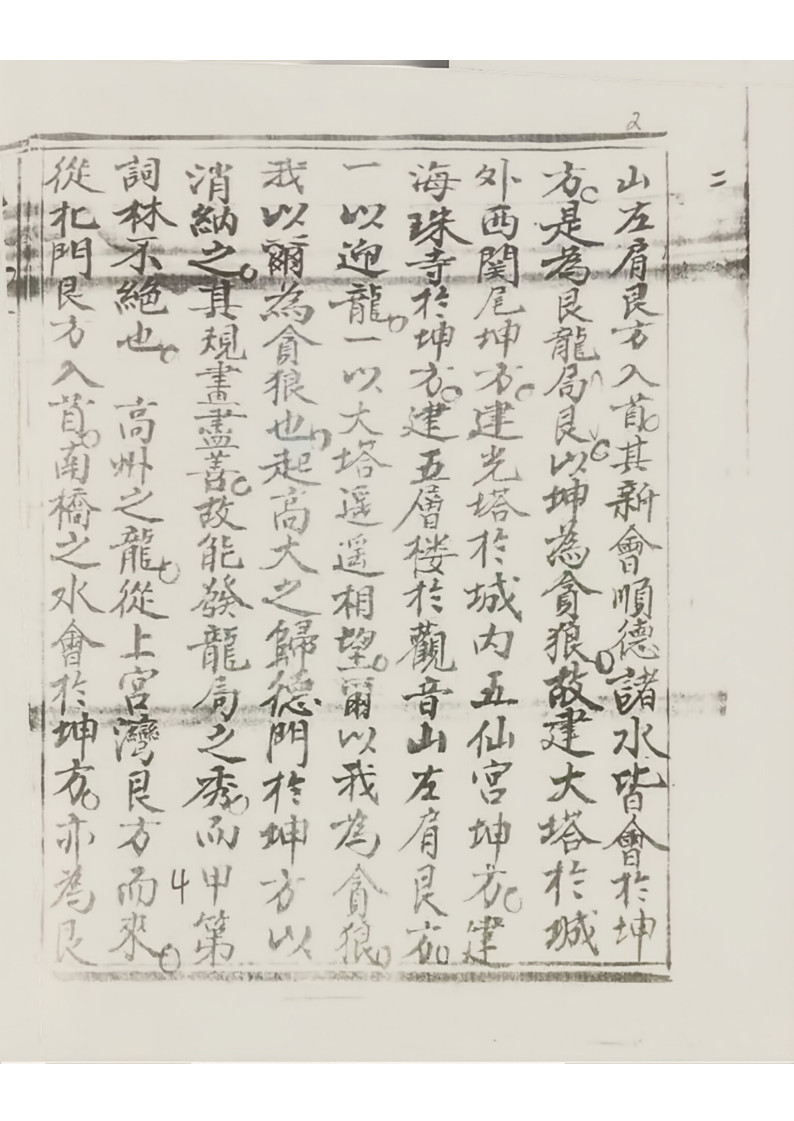 2
二
山左肩艮方入首。其新會順德諸水皆會於坤
方。是為艮龍局。艮以坤為貪狼。故建大塔於城
外西関尾坤方。建光塔於城内五仙宮坤方。建
海珠寺於坤方。建五層楼於觀音山左肩艮方。
一以迎龍。一以大塔遥遥相望。爾以我為貪狼。
我以爾為貪狼也。起高大之歸德門於坤方以
消納之。其規畫盡善。故能發龍局之秀。而甲第
詞林不絕也。 高州之龍。從上宮灣艮方而來。
從北門艮方入首。南橋之水會於坤方。亦為艮
4